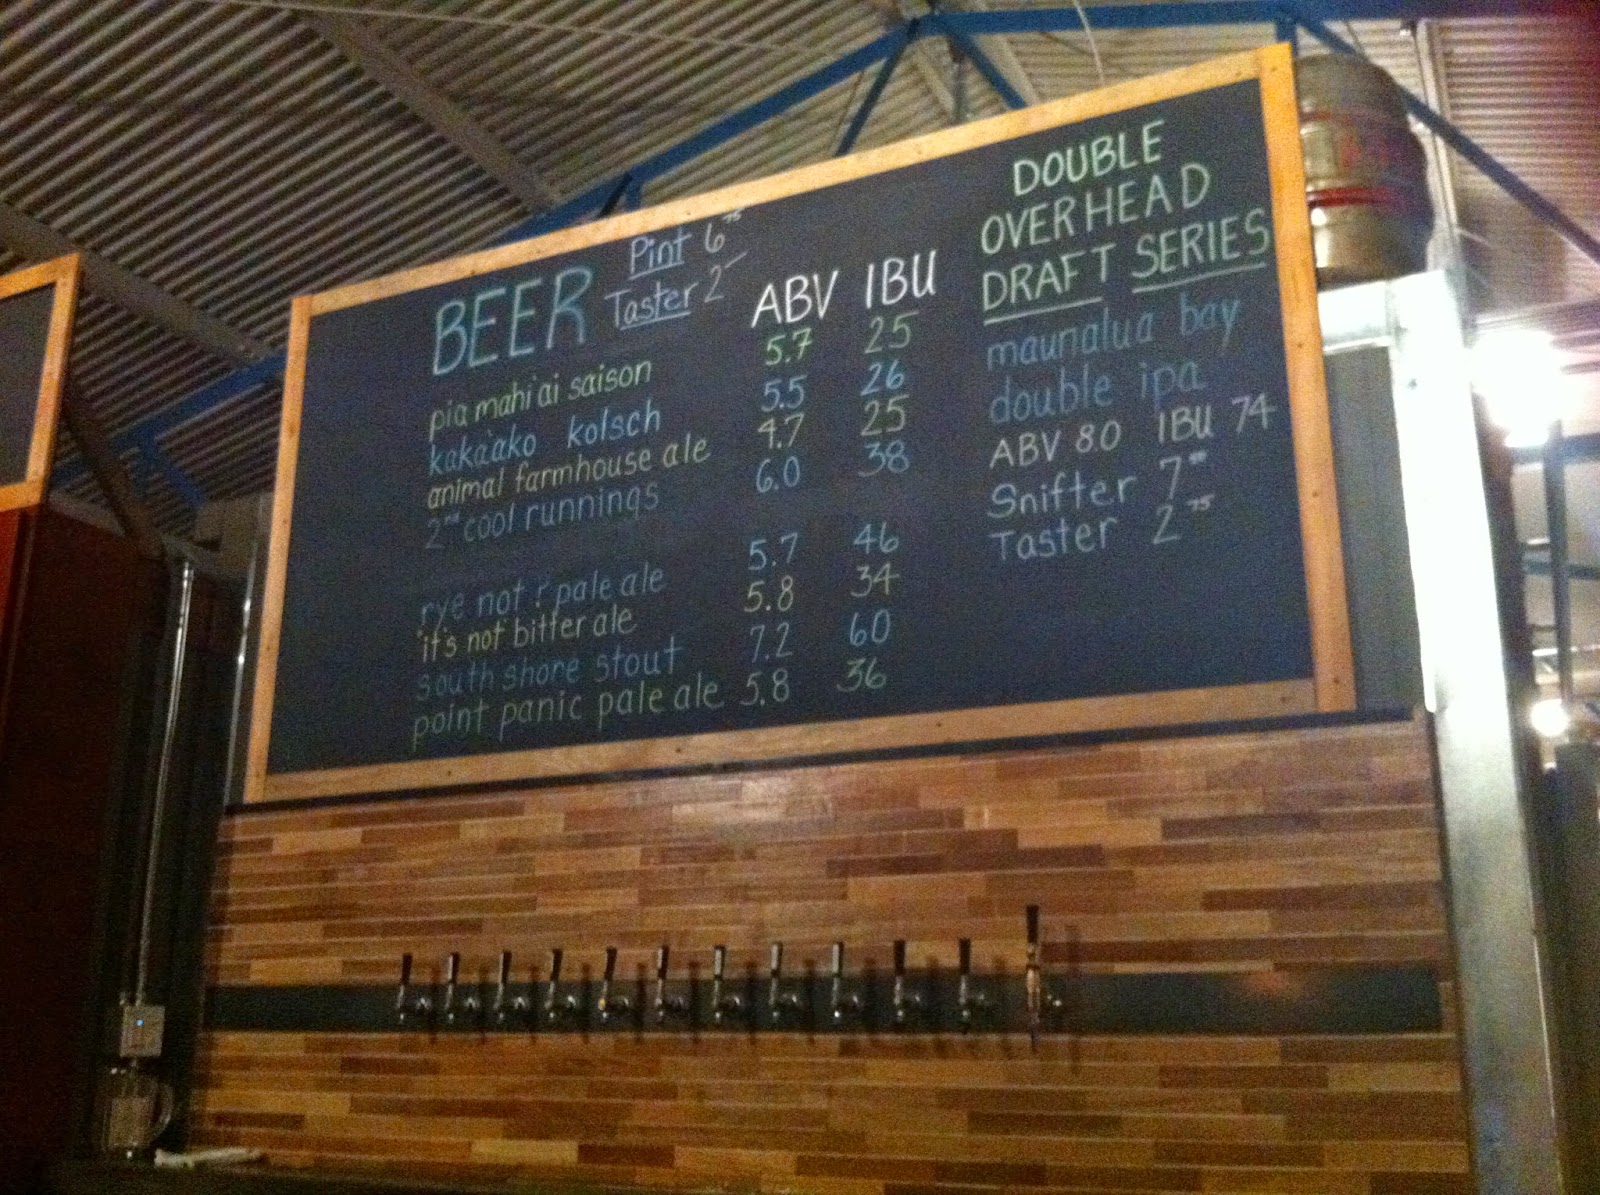 BEER Pint 6 75
Taster 2
ABV IBU
pia mahi'ai saison 5.7 25
kaka'ako kolsch 5.5 26
animal farmhouse ale 4.7 25
2nd cool runnings 6.0 38
rye not? pale ale 5.7 46
it's not bitter ale 5.8 34
south shore stout 7.2 60
point panic pale ale 5.8 36
DOUBLE
OVERHEAD
DRAFT SERIES
maunalua bay
double ipa
ABV 8.0 IBU 74
Snifter 7
Taster 2 75